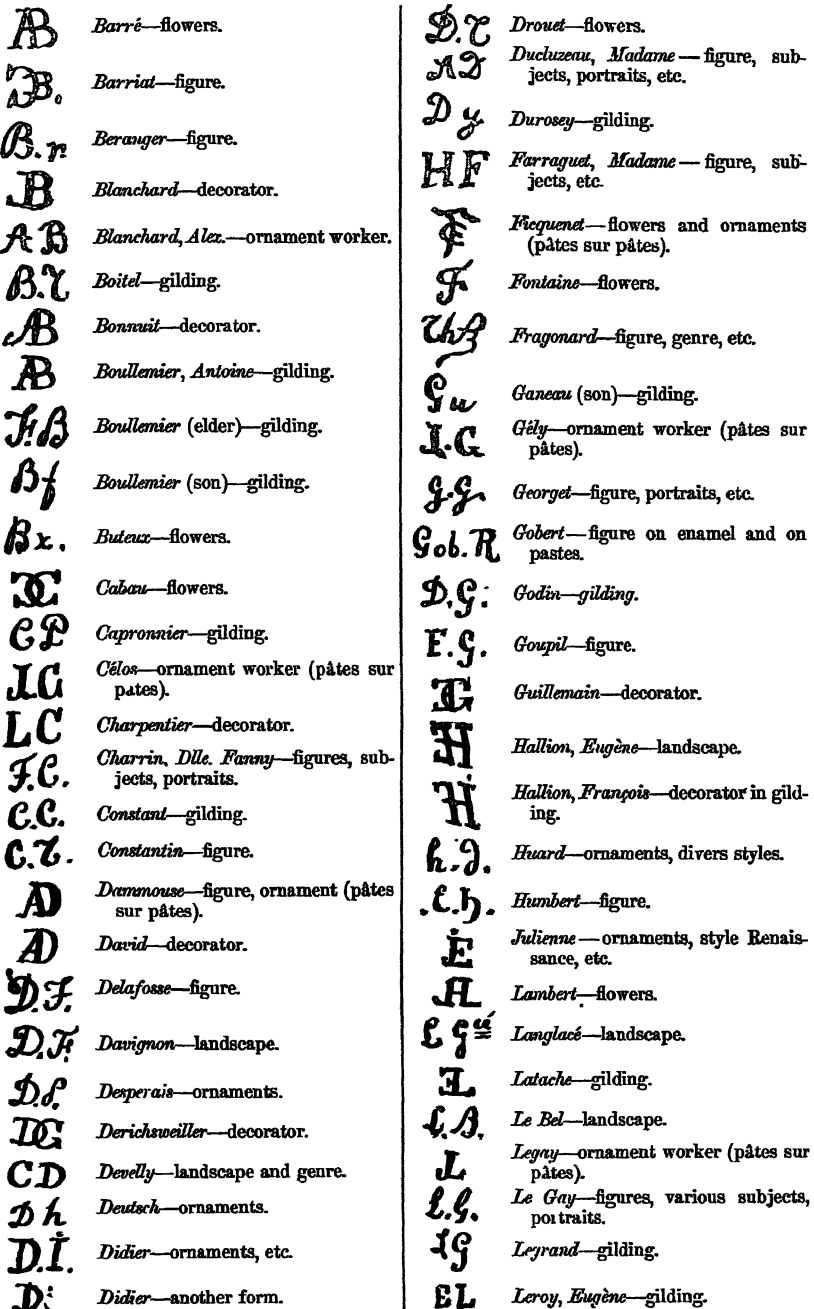 AB Barré—flowers.
B. Barriat—figure.
B. r. Beranger—figure.
B Blanchard—decorator.
A B Blanchard, Alex.—ornament worker.
B. T Boitel—gilding.
AB Bonnuit—decorator.
AB Boullemier, Antoine—gilding.
F. B Boullemier (elder)—gilding.
B f Boullemier (son)—gilding.
B x. Buteux—flowers.
CC Cabau—flowers.
C P Capronnier—gilding.
J. C Célos—ornament worker (pâtes sur
pates).
L C Charpentier—decorator.
F. C. Charrin, Dlle. Fanny—figures, sub-
jects, portraits.
C. C. Constant—gilding.
C. T. Constantin—figure.
AD Dammouse—figure, ornament (pâtes
sur pâtes).
AD David—decorator.
D. F. Delafosse—figure.
D. F. Davignon—landscape.
D. P. Desperais—ornaments.
DG Derichsweiller—decorator.
C D Develly—landscape and genre.
D h Deutsch—ornaments.
D. I. Didier—ornaments, etc.
D: Didier—another form.
D. T Drouet—flowers.
A D Ducluzeau, Madame—figure, sub-
jects, portraits, etc.
D y Durosey—gilding.
H F Farraguet, Madame—figure, sub-
jects, etc.
F Ficquenet—flowers and ornaments
(pâtes sur pâtes).
F Fontaine—flowers.
Th F Fragonard—figure, genre, etc.
G u Ganeau (son)—gilding.
J. G Gély—ornament worker (pâtes sur
pâtes).
G. G. Georget—figure, portraits, etc.
Gob. R Gobert—figure on enamel and on
pastes.
D. G: Godin—gilding.
E. G. Goupil—figure.
G Guillemain—decorator.
H Hallion, Eugène—landscape.
H Hallion, François—decorator in gild-
ing.
h. J. Huard—ornaments, divers styles.
. E. h. Humbert—figure.
E Julienne—ornaments, style Renais-
sance, etc.
H Lambert—flowers.
L Gué Langlacé—landscape.
EL Latache—gilding.
L. B. Le Bel—landscape.
L Legay—ornament worker (pâtes sur
pâtes).
L. G. Le Gay—figures, various subjects,
portraits.
L G Legrand—gilding.
E L Leroy, Eugène—gilding.